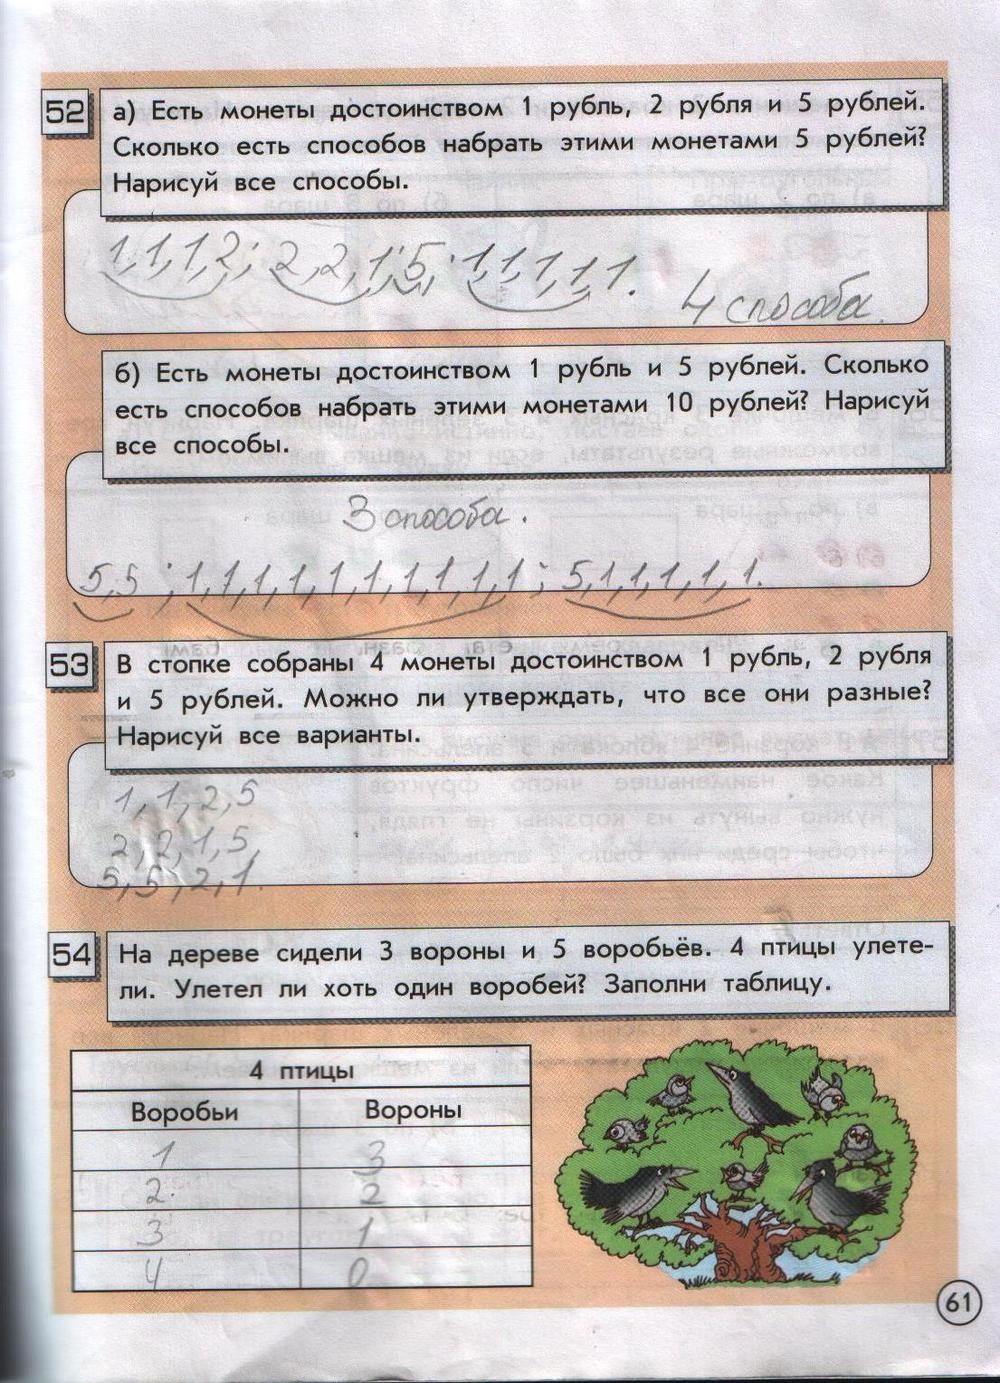 52
а) Есть монеты достоинством 1 рубль, 2 рубля и 5 рублей.
Сколько есть способов набрать этими монетами 5 рублей?
Нарисуй все способы.
1,1,1,2; 2,2,1; 5; 1,1,1,1,1.
4 способа.
б) Есть монеты достоинством 1 рубль и 5 рублей. Сколько
есть способов набрать этими монетами 10 рублей? Нарисуй
все способы.
3 способа.
5,5; 1,1,1,1,1,1,1,1,1,1; 5,1,1,1,1,1.
53
В стопке собраны 4 монеты достоинством 1 рубль, 2 рубля
и 5 рублей. Можно ли утверждать, что все они разные?
Нарисуй все варианты.
1,1,2,5
2,2,1,5,
5,5,2,1.
54
На дереве сидели 3 вороны и 5 воробьёв. 4 птицы улете-
ли. Улетел ли хоть один воробей? Заполни таблицу.
4 птицы
Воробьи Вороны
1 3
2. 2
3 1
4 0
61